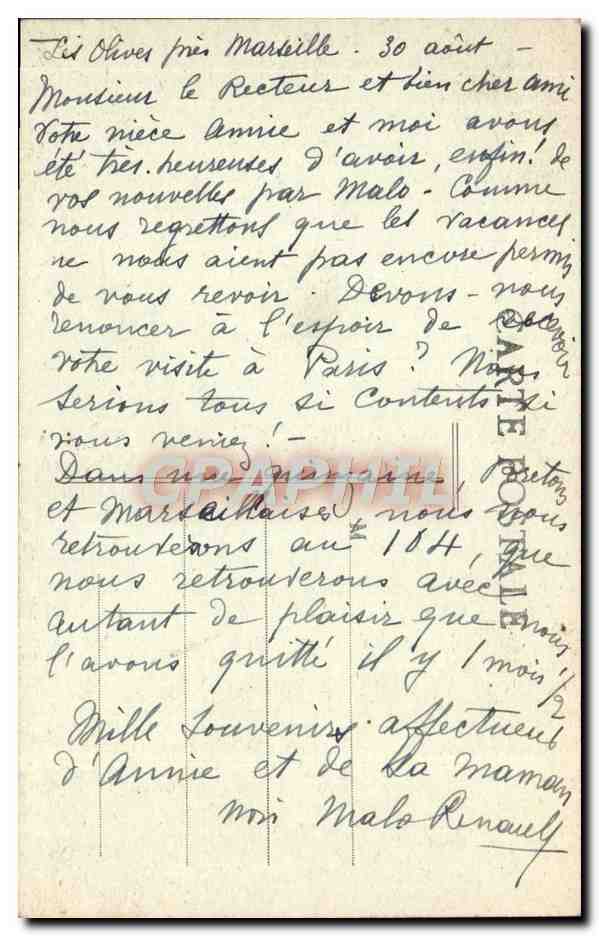 Les Olives près Marseille . 30 août -
Monsieur le Recteur et bien cher ami
Votre nièce Annie et moi avons
été très heureuses d'avoir, enfin! de
vos nouvelles par Malo - Comme
nous regrettons que les vacances
ne nous aient pas encore permis
de vous revoir . Devons-nous
renoncer à l'espoir de recevoir
votre visite à Paris ? Nous
serions tous si contents si
vous veniez ! -
Dans une quinzaine, Bretons
et Marseillaises nous nous
retrouverons au 104, que
nous retrouverons avec
autant de plaisir que nous
l'avons quitté il y 1 mois 1/2
Mille souvenirs affectueux
d'Annie et de sa maman
Malo Renault
CARTE POSTALE
M
CPAPHIL